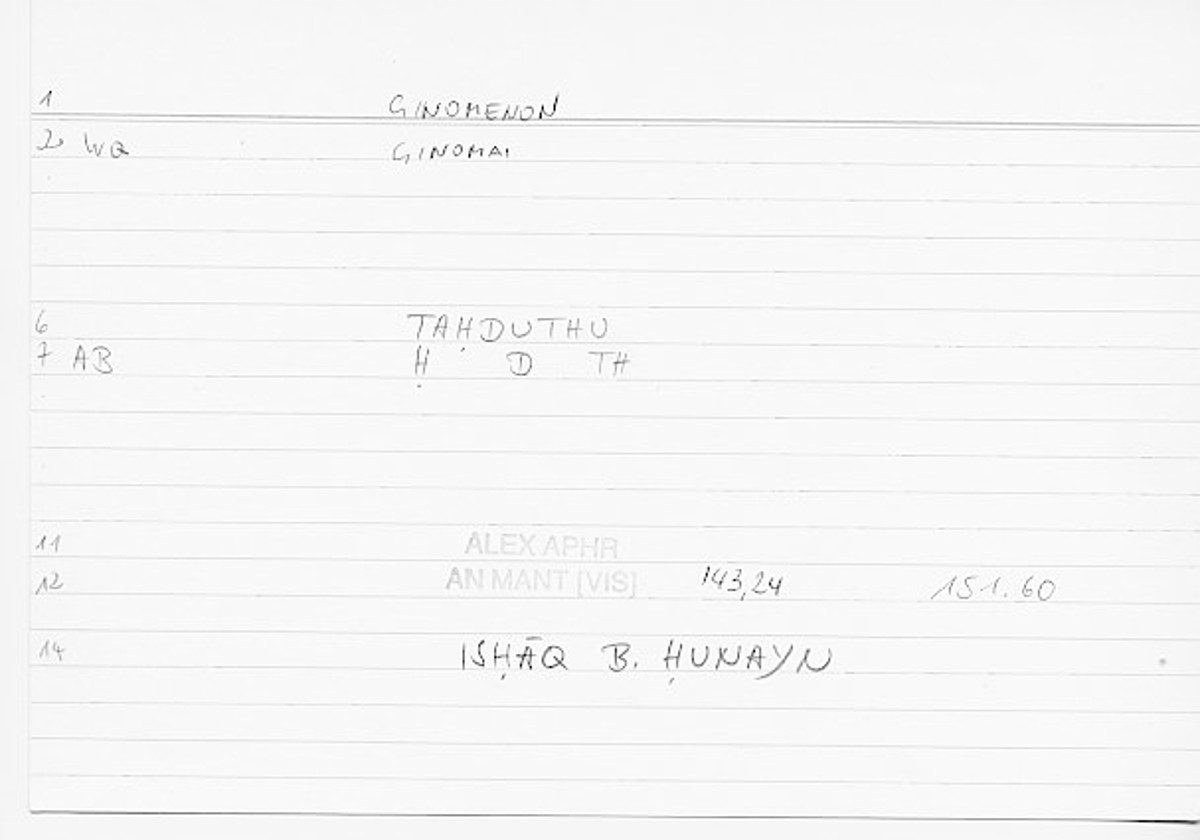 1 GINOMENON
2 WQ GINOMAI
6 TAḤDUTHU
7 AB Ḥ D TH
11 ALEX APHR
12 AN MANT [VIS] 143,24 151.60
14 ISḤĀQ B. ḤUNAYN